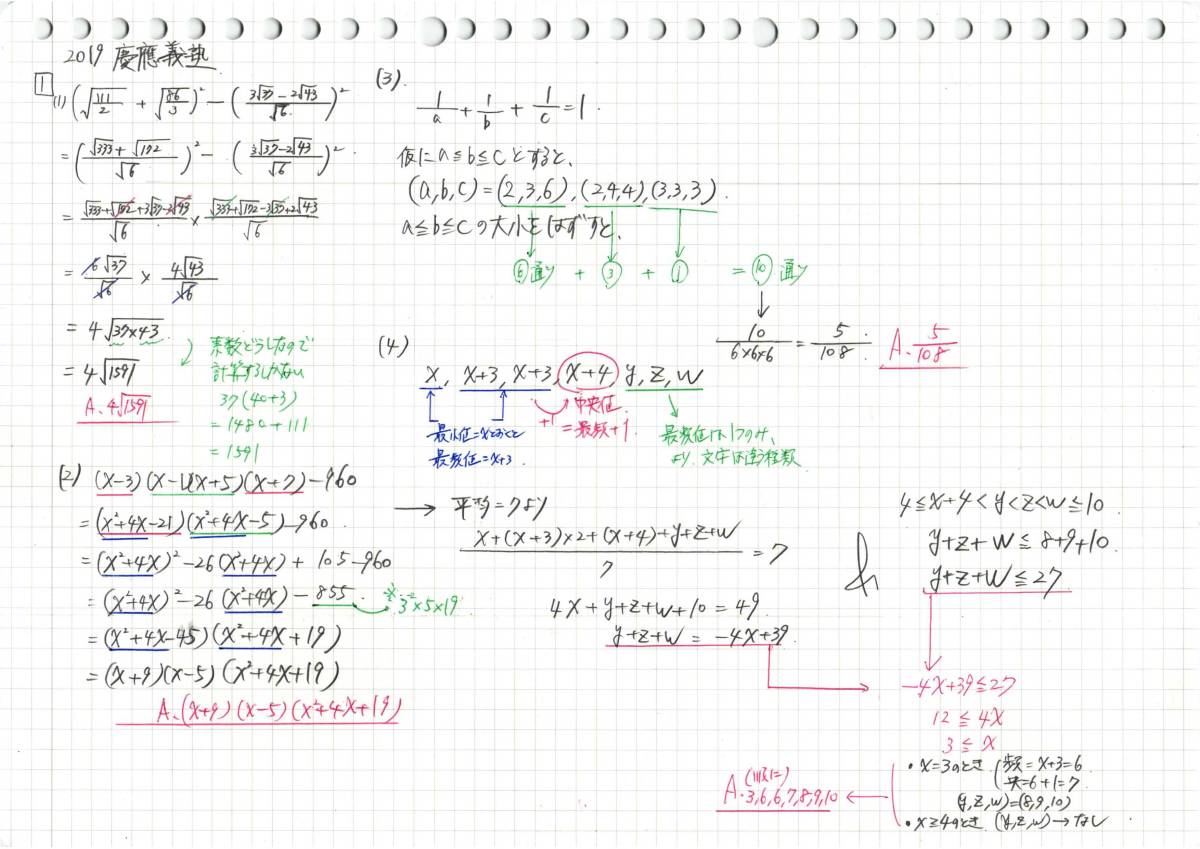 2019 慶應義塾
1
(1) (√(111/2) + √(86/3))² − ((3√37 − 2√43)/√6)²
= ((√333 + √172)/√6)² − ((3√37 − 2√43)/√6)²
= (√333 + √172 + 3√37 − 2√43)/√6 × (√333 + √172 − 3√37 + 2√43)/√6
= 6√37/√6 × 4√43/√6
= 4√(37×43)
= 4√1591
A. 4√1591
素数どうしなので
計算するしかない
37(40+3)
= 1480 + 111
= 1591
(2) (x−3)(x−1)(x+5)(x+7)−960
= (x²+4x−21)(x²+4x−5)−960
= (x²+4x)²−26(x²+4x)+105−960
= (x²+4x)²−26(x²+4x)−855 ※ 3²×5×19
= (x²+4x−45)(x²+4x+19)
= (x+9)(x−5)(x²+4x+19)
A. (x+9)(x−5)(x²+4x+19)
(3)
1/a + 1/b + 1/c = 1
仮に a≦b≦c とすると、
(a,b,c) = (2,3,6), (2,4,4), (3,3,3)
a≦b≦c の大小をはずすと、
⑥通り + ③ + ① = ⑩通り
10/(6×6×6) = 5/108
A. 5/108
(4)
x, x+3, x+3, x+4, y, z, w
+1
中央値
= 最頻+1
最小値=xとおくと
最頻値=x+3
最頻値は1つのみ
より、文字は
→ 平均=7より
(x+(x+3)×2+(x+4)+y+z+w)/7 = 7
4x+y+z+w+10 = 49
y+z+w = −4x+39
&
4≦x+4<y<z<w≦10
y+z+w≦8+9+10
y+z+w≦27
−4x+39≦27
12≦4x
3≦x
・x=3のとき 頻=x+3=6
央=6+1=7
(y,z,w)=(8,9,10)
・x≧4のとき (y,z,w)→なし
(順に)
A. 3,6,6,7,8,9,10